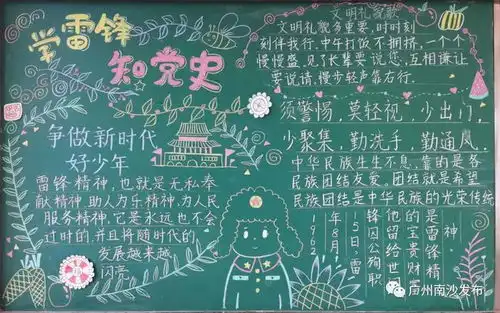 学雷锋
知党史
争做新时代
好少年
雷锋精神,也就是无私奉
献精神,助人为乐精神,为人民
服务精神,它是永远也不会
过时的,并且将随时代的
发展越来越
闪亮
文明礼貌歌
文明礼貌多重要,时时刻
刻伴我行.中午打饭不拥挤,一个个
慢慢盛.见了长辈要说您,互相谦让
要说请,慢步轻声靠右行.
须警惕,莫轻视,少出门,
少聚集,勤洗手,勤通风.
中华民族生生不息,靠的是各
民族团结友爱。团结就是希望
民族团结是中华民族的光荣传统
1962
年8月
15日,雷
锋因公殉职
他留给世
的宝贵财
是雷锋精
神
广州南沙发布